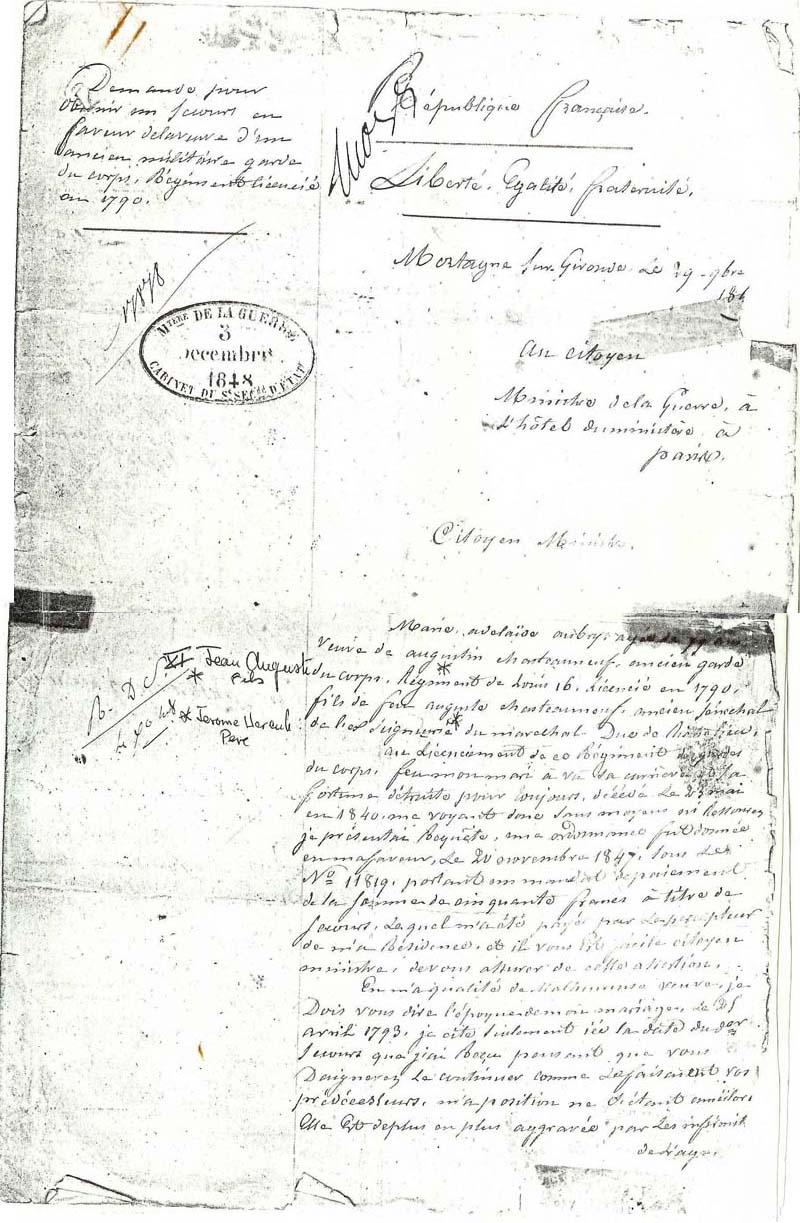 Demande pour
obtenir un secours en
faveur delaveuve d'un
ancien militaire garde
du corps, Régiment licencié
en 1790.
République française.
Liberté, Egalité, fraternité.
Mortagne sur Gironde, Le 29 9bre
184
Mtère DE LA GUERRE
3
Décembre
1848
CABINET DU Ss SECre D'ÉTAT
Au citoyen
Ministre dela Guerre, à
L'hôtel duministère, à
paris.
Citoyen Ministre,
Jean Auguste
* fils
* Jerome Hercule
Pere
Marie, adelaïde aubry,
Veuve de augustin Chasteauneuf, ancien garde
du corps, Régiment de Louis 16, Licencié en 1790,
fils de feu auguste Chasteauneuf, ancien sénéchal
de Seigneurie du marechal Duc de Richelieu,
au Licenciement de ce Régiment de gardes
du corps, feu mon mari à vu sa carrière et sa
fortune détruite pour toujours, décédé Le 23 mai
en 1840, me voyant donc sans moyens ni Ressources
je présentai Requête, une ordonnance fut donnée
en mafaveur, Le 20 novembre 1847, sous Le
No 11819, portant un mandat depaiement
de la somme de cinquante francs à titre de
secours, Lequel m'a été payé par Lepercepteur
de m'a Résidence, et il vous Est facile citoyen
ministre, devous assurer de cette assertion.
En m'a qualité de Malheureuse veuve, je
Dois vous dire l'époque demon mariage, Le 25
avril 1793, je cite seulement ici la date du der
secours que j'ai Reçu pensant que vous
Daignerez Le continuer comme Lefaisaient vos
prédécesseurs, m'a position ne s'étant améliorée
Elle Est deplus en plus aggravée par Les infirmités
de L'age.